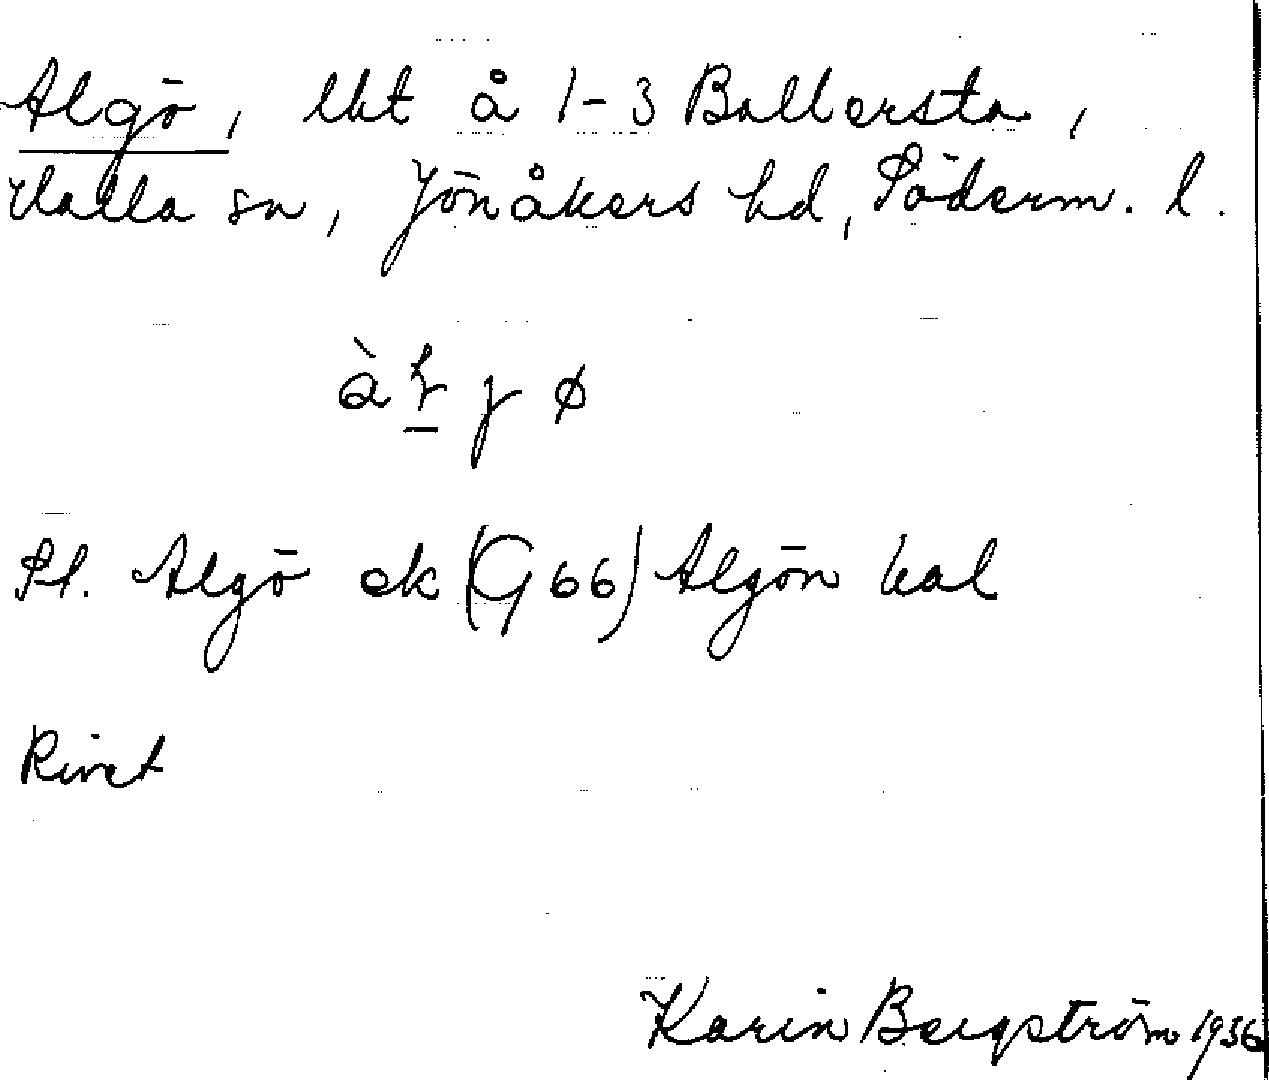 Algö, lht å 1-3 Ballersta,
Halla sn, Jönåkers hd, Söderm. l.
Pl. Algö ek (G 66) Algön kal
Rivet
Karin Bergström 1936